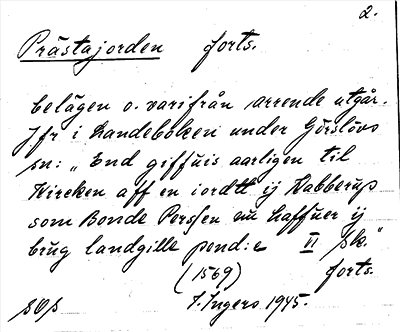 2.
Prästajorden forts.
belägen o. varifrån arrende utgår.
Jfr i Landeboken under Görslövs
sn: „End giffuis aarligen til
Kircken aff en iordtt ij Habberup
som Bonde Persen nu haffuer ij
brug landgille pend:e VI sk."
(1569) forts.
I. Ingers 1945.